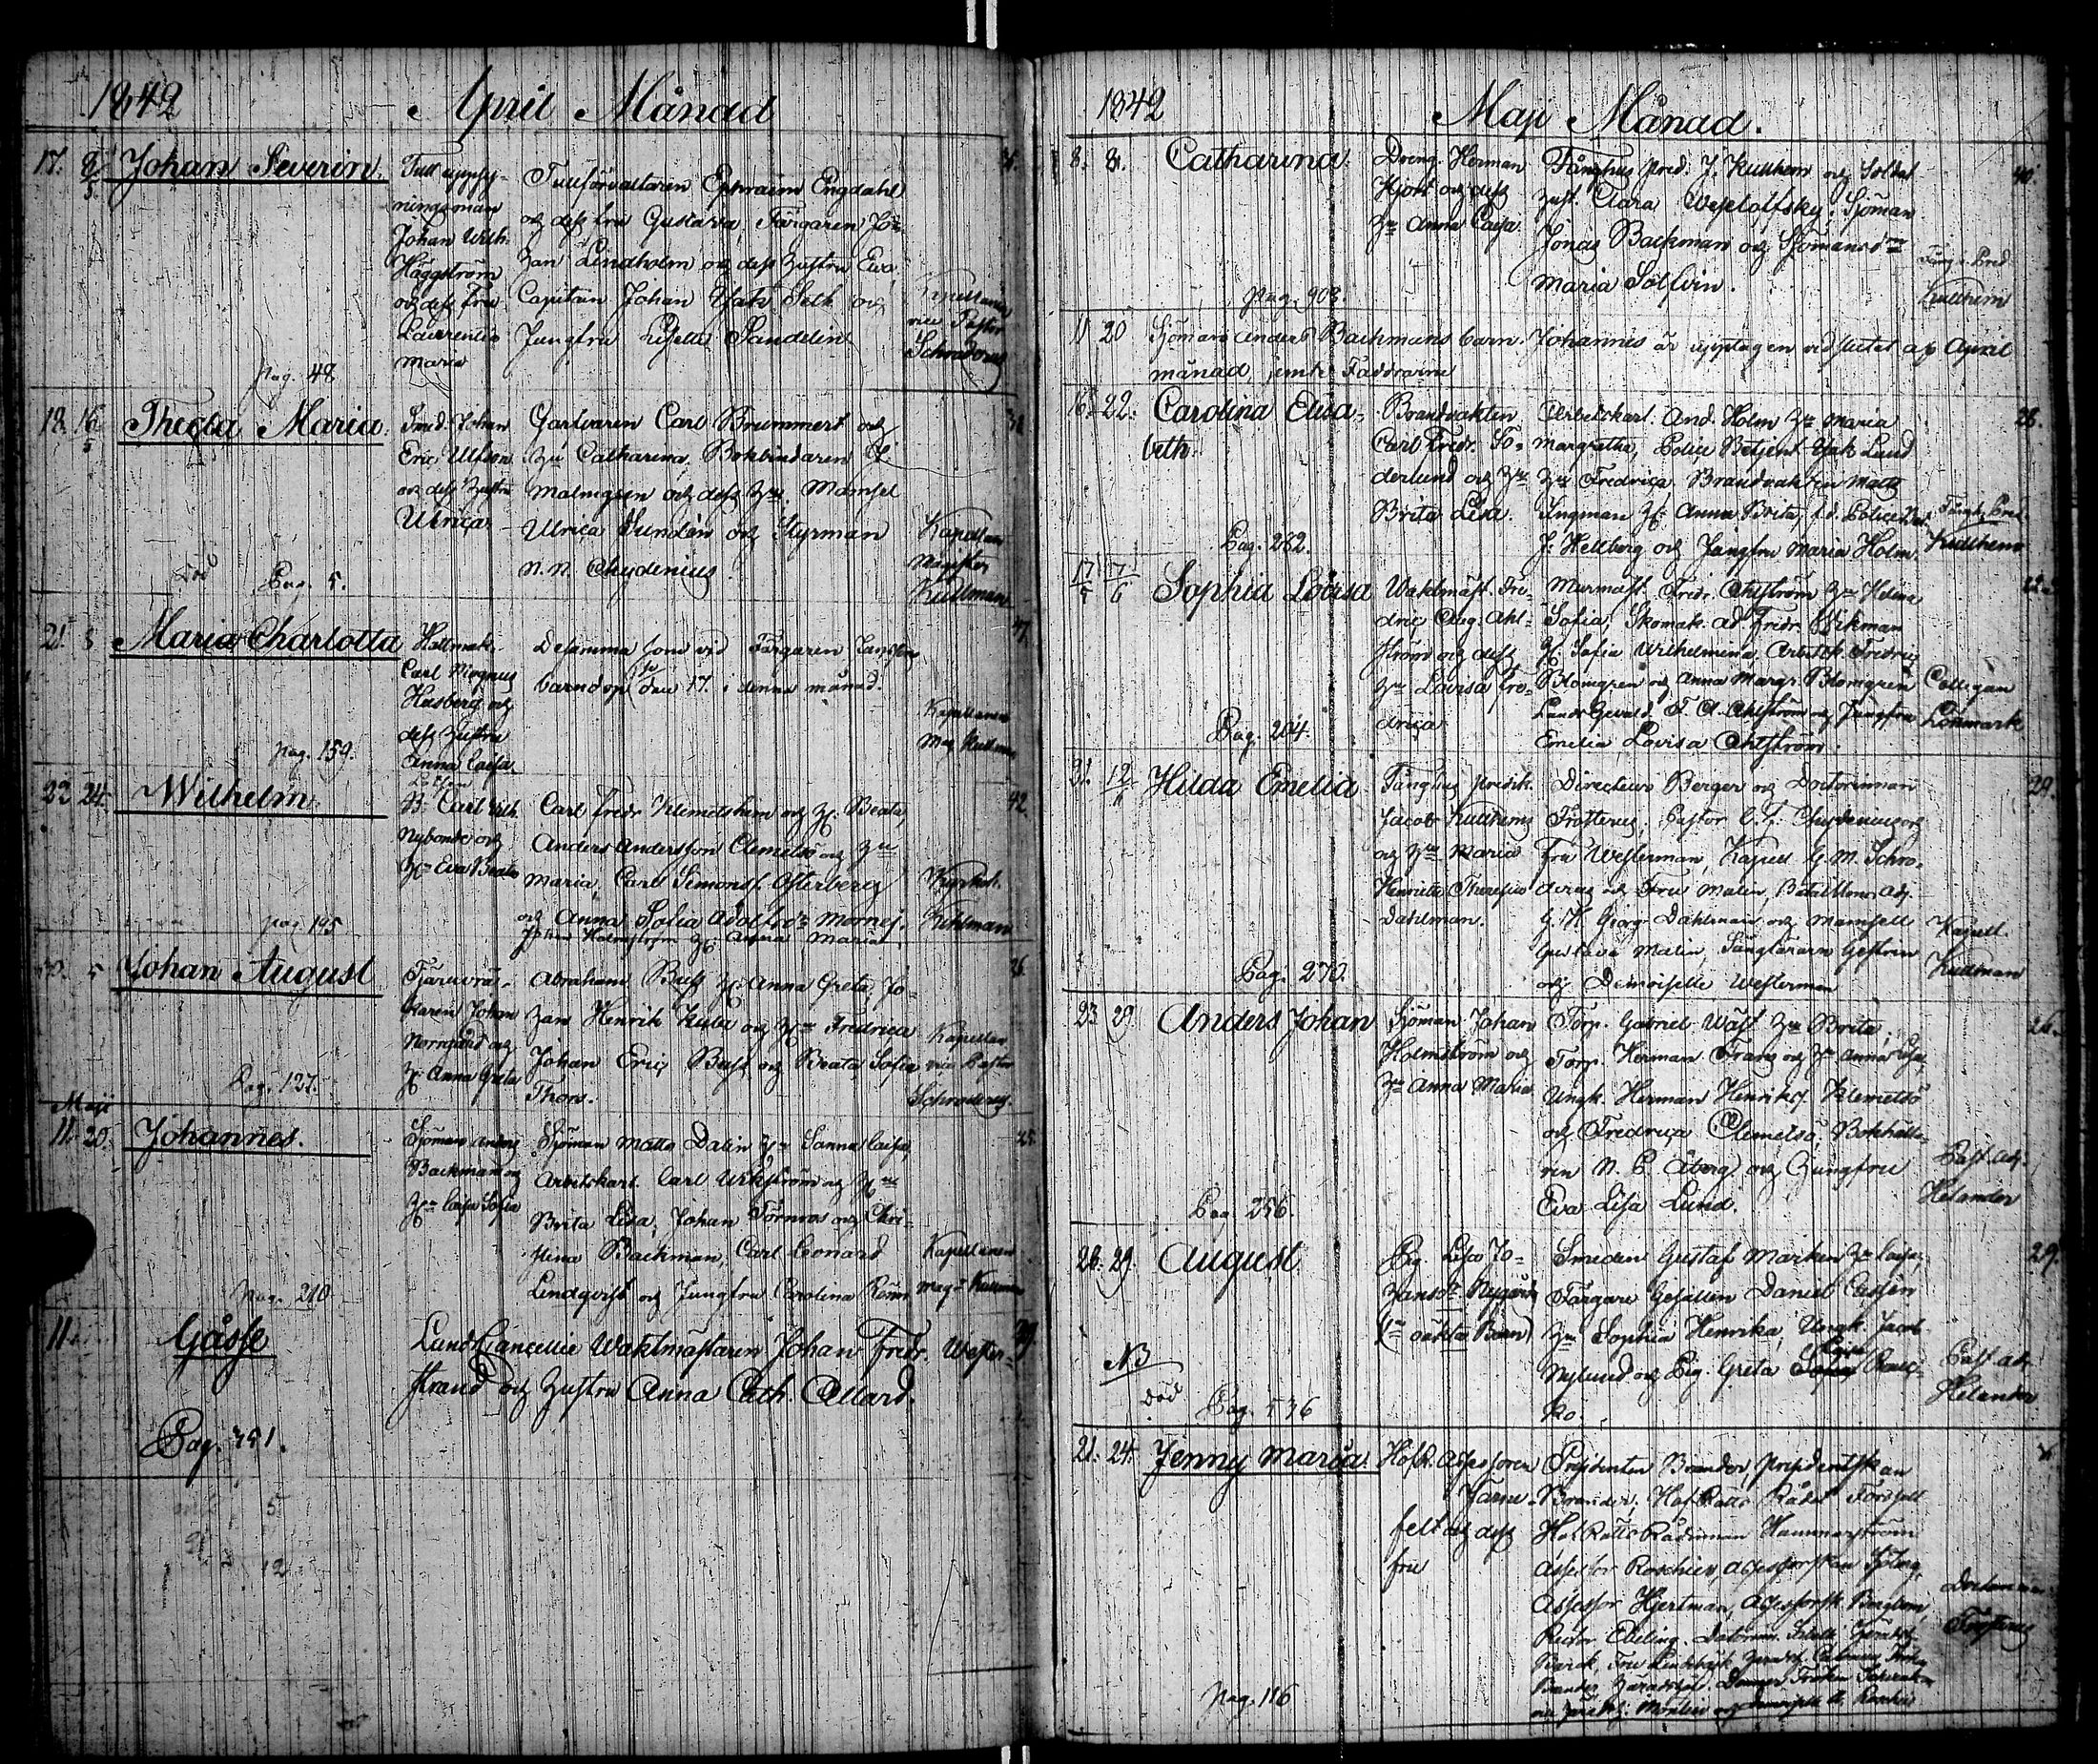 1842 April Månad
17. 8/5 Johan Severin.
Tull uppsy-
ningsman
Johan Wilh.
Häggström
och dess Fru
Laurentia
Maria
Tullförvaltaren Ephraim Engdahl
och dess fru Gustava, Färgaren Jo-
han Lindholm och dess hustru Eva,
Capitain Johan Jak Seth och
Jungfru Lisette Sandelin
vice Pastor
Schroderus
Pag. 48
18. 16/5 Thecla Maria.
Johan
Eric Ulfson
och dess hustru
Ulrica
Garfvaren Carl Brummert och
hu Catharina, Bokbindaren
Malmgren och dess hu. Mamsel
Ulrica Sundén och Styrman
N. N. Chydenius.
Kapellan
Magister
Kullman
död Pag. 5.
21. 8 Maria Charlotta
Hattmak.
Carl Magnus
Hasberg och
dess hustru
Anna Caisa
Desamma som vid Färgaren
barndop den 17 i denna månad.
Kapellanen
Mag Kullman
pag. 159.
22 24. Wilhelm.
B. Carl Wilh.
Nybonde och
h. Eva Beata
Carl Fredr Klemetshem och h. Beata,
Anders Andersson Clemetsö och hu
Maria, Carl Simonds. Österberg
och Anna Sofia Adolfsdr Mornej.
Johan Holmström h. Anna Maria
Kihlman
pag 195
42.
30. 5 Johan August
Johan
Norrgård och
h Anna Greta
Abraham Buss h. Anna Greta, Jo-
han Henrik Kula och hu Fredrica
Johan Eric Buss och Beata Sofia
Thors.
Kapellan
vice Pastor
Schroderus.
Pag. 127.
26
Maji
11. 20. Johannes.
Sjöman Anders
Backman och
hu Caisa Sofia
Sjöman Matts Dalin hu Sanna Caisa
Arbetskarl Carl Wikström och hu
Brita Lisa, Johan Törnros och Chri-
stina Backman, Carl Leonard
Lindqvist och Jungfru Carolina
Kapellanen
Mag. Kullman
Pag. 210
25.
11. Gåsse
Lands Cancellie Waktmästaren Johan Fredr. Wester-
strand och hustru Anna Cath. Allard.
Pag. 391.
39
5
12
1842 Maji Månad.
8. 8. Catharina.
Dreng. Herman
Hjort och dess
hu Anna Caisa
Fånghus pred. J. Kullhem och Soldat
hust. Clara Wesslofsky. Sjöman
Jonas Backman och Sjömansdr
Maria Solfvin.
Fång. Pred
Kullhem
pag. 908.
40.
11 20 Sjöman Anders Backmans barn Johannes är upptagen vid slutet af April
månad, jemte Faddrarna
16. 22. Carolina Elisa-
beth.
Brandvakten
Carl Fredr. Sö-
derlund och hu
Brita Lisa.
Arbetskarl. And. Holm hu Maria
Margretha, Police Betjent Jak Lund
hu Fredrica, Brandvakten Matts
Ingman h. Anna Brita, Police
J. Hellberg och Jungfru Maria Holm.
Fångh. Pred
Kullhem
Pag. 282.
28.
17/5 7/6 Sophia Lovisa
Waktmäst. Fre-
dric Aug. Ahl-
ström och dess
hu Lovisa Fre-
drica
Murmäst. Fredr. Ahlström hu Helena
Sofia, Skomak. Ad Fredr. Wikman
h. Sofia Wilhelmina, Arbetsk. Fredric
Blomgren och Anna Margr. Blomgren
Lands Gevald. F. A. Ahlström och Jungfru
Emelia Lovisa Ahlström.
Collegan
Lönmark
Pag. 204.
21. 12/6 Hilda Emelia
Fånghus predik.
Jacob Kullhems
och hu Maria
Henrietta Theresia
Dahlman.
Directeur Berger och Doctorinnan
Frosterus, Pastor C. F. Chydenius och
Fru Westerman, Kapell G. M. Schro-
derus och Fru Malin, Bataillons adj.
G. H. Georg Dahlman och Mamsell
Gustava Malin, Fänglararn Gestrin
och Demoiselle Westerman
Kapell.
Kullman
Pag. 270.
29.
23 29 Anders Johan
Sjöman Johan
Holmström och
hu Anna Maria
Torp. Gabriel Wäst hu Brita,
Torp. Herman Frang och hu Anna Lisa,
Ungk. Herman Henriks. Klemetsö
och Fredrica Clemetsö Bokhålla-
ren N. P. Åberg och Jungfru
Eva Lisa Lund.
Past. adj.
Helander
Pag. 256.
26.
26. 29. August.
Pig. Lisa Jo-
hansdr Nygård
(1a oäkta Barn)
Smeden Gustaf Marken hu Caisa,
Färgare Gesällen Daniel Cassén
hu Sophia Henrika, Ungk. Jacob
Nylund och Pig. Greta Caisa Rauc-
ko.
Past. adj.
Helander
NB
död Pag. 536
29.
21. 24. Jenny Maria.
HofR. Assessoren
Järne-
felt och dess
fru
Presidenten Brander, Presidentskan
Brander, HofRätts Rådet Forssell
HofRätts Rådinnan Hammarström
Assessor Roschier, Assessorskan
Assessor Hjertman, Assessorsk. Bergbom,
Rector Ebeling.
Frosterus
pag. 116